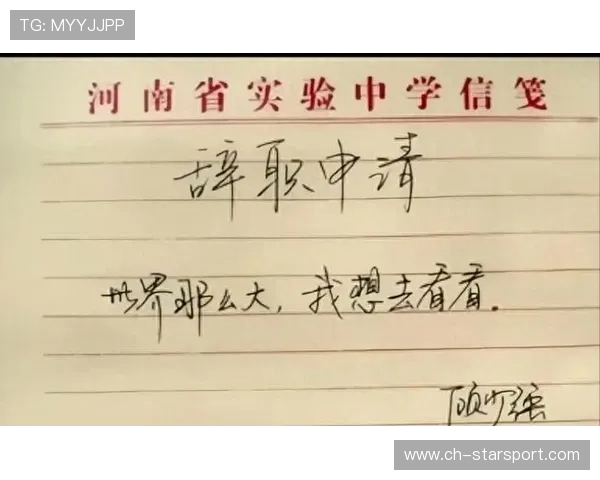 TG: MYYJJPP
河南省实验中学信笺
辞职申请
世界那么大，我想去看看。
顾少强
www.ch-starsport.com